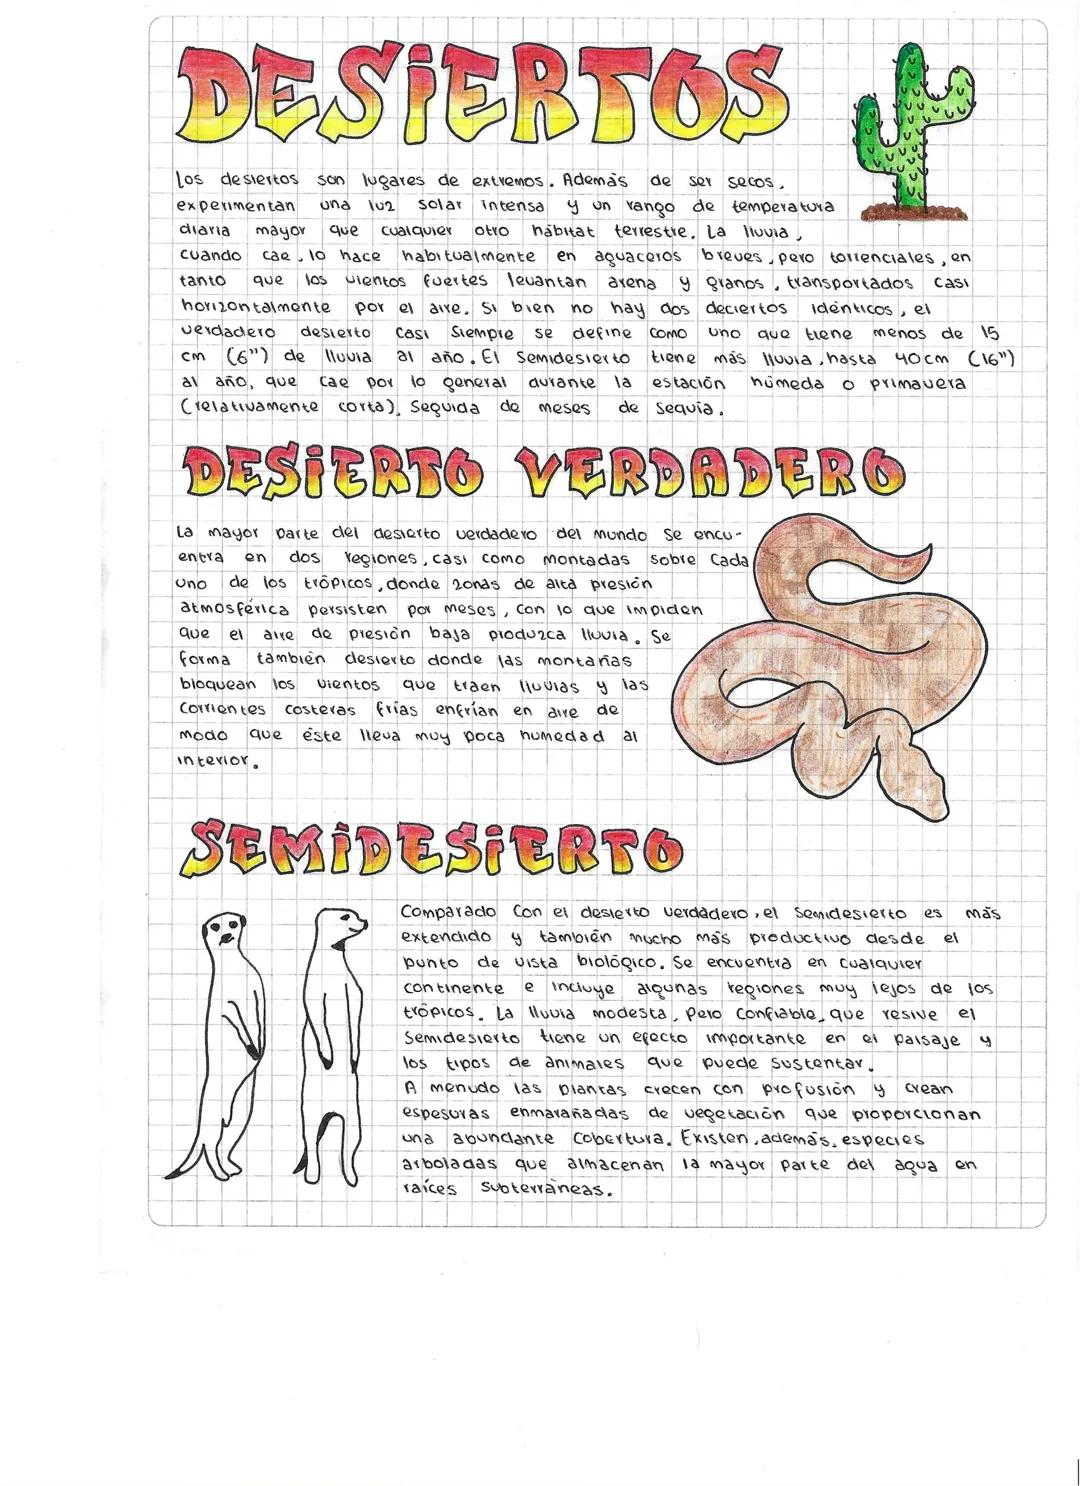 DESiERTOS
Los desiertos son lugares de extremos. Además de ser secos,
experimentan una luz solar intensa y un rango de temperatura
diaria mayor que cualquier otro hábitat terrestre. La lluvia,
cuando cae, lo hace habitualmente en aguaceros breves, pero torrenciales, en
tanto que los vientos fuertes levantan arena y granos, transportados casi
horizontalmente por el aire. Si bien no hay dos deciertos idénticos, el
verdadero desierto casi siempre se define como uno que tiene menos de 15
cm (6") de lluvia al año. El semidesierto tiene más lluvia, hasta 40cm (16")
al año, que cae por lo general durante la estación húmeda o primavera
(relativamente corta), seguida de meses de sequía.
DESiERTO VERDADERO
La mayor parte del desierto verdadero del mundo se encu-
entra en dos regiones, casi como montadas sobre cada
uno de los trópicos, donde zonas de alta presión
atmosférica persisten por meses, con lo que impiden
que el aire de presión baja produzca lluvia. Se
forma también desierto donde las montañas
bloquean los vientos que traen lluvias y las
corrientes costeras frías enfrían en aire de
modo que éste lleva muy poca humedad al
interior.
SEMiDESiERTO
Comparado con el desierto verdadero, el semidesierto es más
extendido y también mucho más productivo desde el
punto de vista biológico. Se encuentra en cualquier
continente e incluye algunas regiones muy lejos de los
trópicos. La lluvia modesta, pero confiable, que resive el
semidesierto tiene un efecto importante en el paisaje y
los tipos de animales que puede sustentar.
A menudo las plantas crecen con profusión y crean
espesuras enmarañadas de vegetación que proporcionan
una abundante cobertura. Existen, además, especies
arboladas que almacenan la mayor parte del agua en
raíces subterráneas.